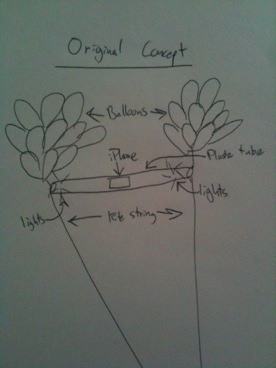 Original Concept
Balloons
iPhone
Plastic tube
lights
lights
kite string